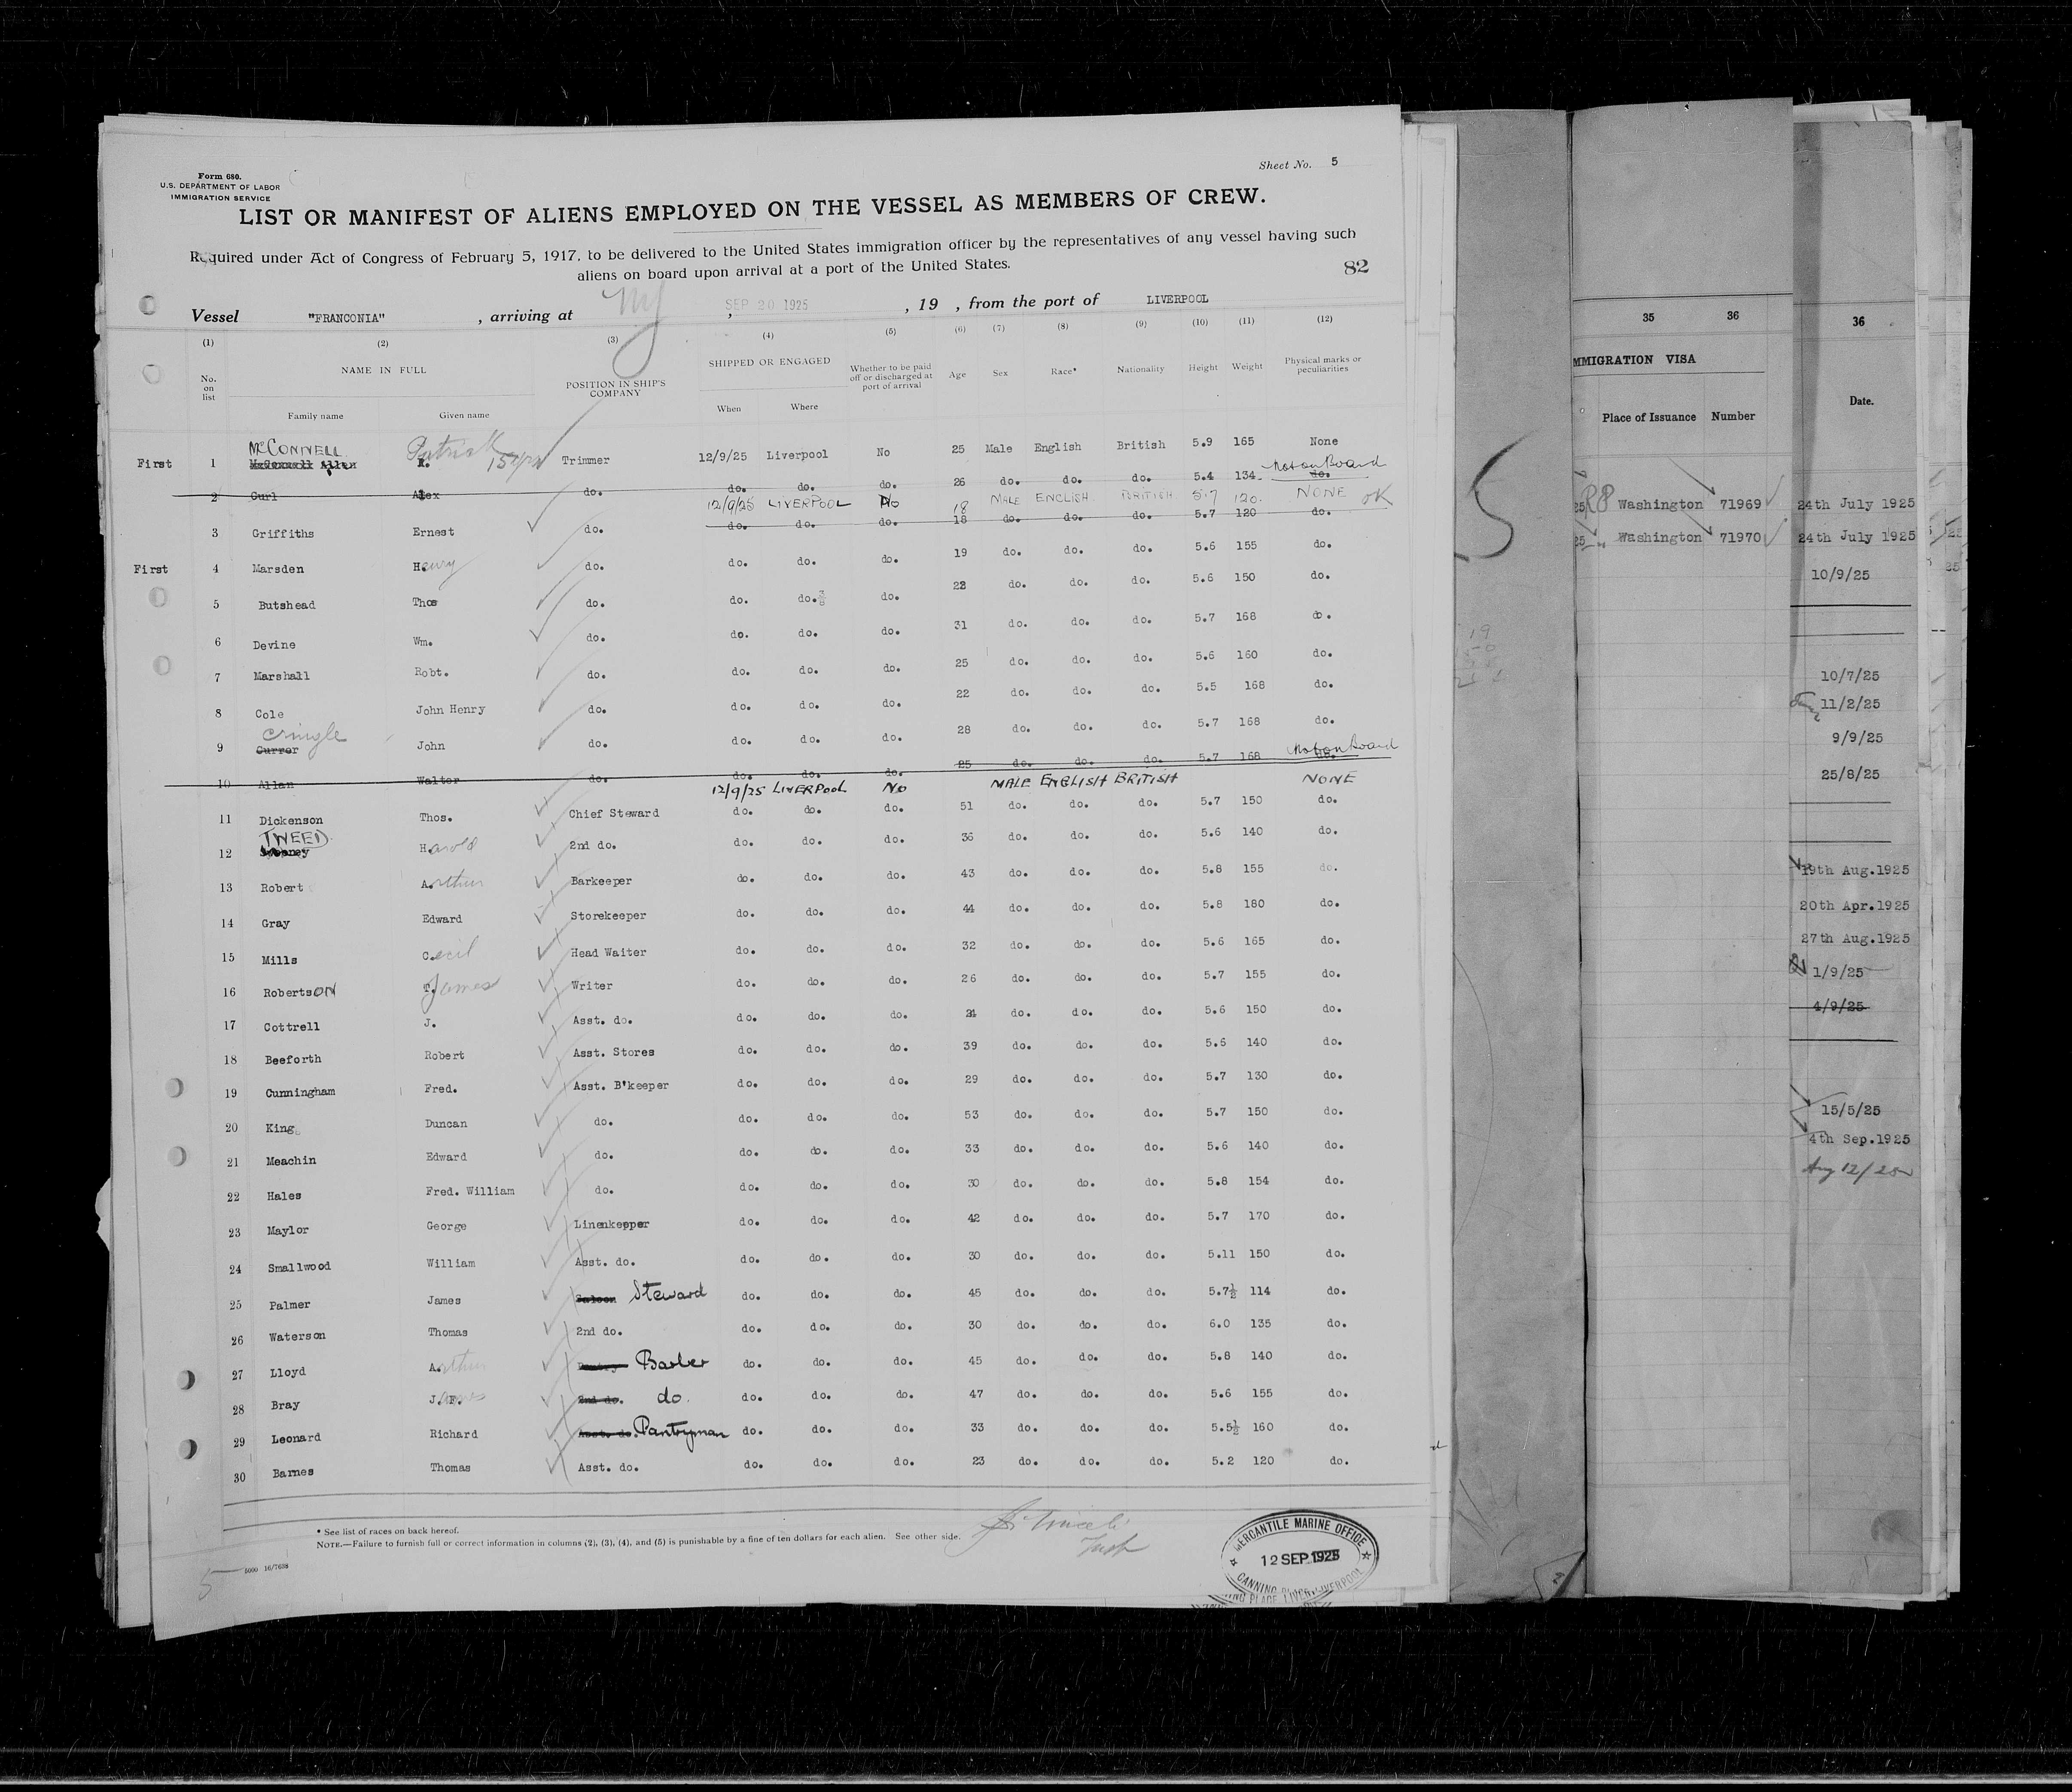 Sheet No. 5
Form 680.
U.S. DEPARTMENT OF LABOR
IMMIGRATION SERVICE
LIST OR MANIFEST OF ALIENS EMPLOYED ON THE VESSEL AS MEMBERS OF CREW.
Required under Act of Congress of February 5, 1917, to be delivered to the United States immigration officer by the representatives of any vessel having such
aliens on board upon arrival at a port of the United States.
82
Vessel "FRANCONIA" , arriving at NY , SEP 20 1925 , 19 , from the port of LIVERPOOL
(1) (2) (3) (4) (5) (6) (7) (8) (9) (10) (11) (12)
No. on list NAME IN FULL POSITION IN SHIP'S COMPANY SHIPPED OR ENGAGED Whether to be paid off or discharged at port of arrival Age Sex Race* Nationality Height Weight Physical marks or peculiarities
Family name Given name When Where
McCONNELL Patrick
First 1 McConnell Allen Trimmer 12/9/25 Liverpool No 25 Male English British 5.9 165 None
Not on Board
2 Curl Alex do. do. do. do. 26 do. do. do. 5.4 134 do.
12/9/25 LIVERPOOL No 18 MALE ENGLISH BRITISH 5.7 120. NONE OK
3 Griffiths Ernest do. do. do. do. 18 do. do. do. 5.7 120 do.
First 4 Marsden Henry do. do. do. do. 19 do. do. do. 5.6 155 do.
5 Butshead Thos do. do. do. do. 22 do. do. do. 5.6 150 do.
6 Devine Wm. do. do. do. do. 31 do. do. do. 5.7 168 do.
7 Marshall Robt. do. do. do. do. 25 do. do. do. 5.6 160 do.
8 Cole John Henry do. do. do. do. 22 do. do. do. 5.5 168 do.
Cringle
9 Currer John do. do. do. do. 28 do. do. do. 5.7 168 do.
Not on Board
10 Allan Walter do. do. do. do. 25 do. do. do. 5.7 168 do.
12/9/25 LIVERPOOL No MALE ENGLISH BRITISH NONE
11 Dickenson Thos. Chief Steward do. do. do. 51 do. do. do. 5.7 150 do.
TWEED
12 Harold 2nd do. do. do. do. 36 do. do. do. 5.6 140 do.
13 Robert Arthur Barkeeper do. do. do. 43 do. do. do. 5.8 155 do.
14 Gray Edward Storekeeper do. do. do. 44 do. do. do. 5.8 180 do.
15 Mills Cecil Head Waiter do. do. do. 32 do. do. do. 5.6 165 do.
16 RobertsON James Writer do. do. do. 26 do. do. do. 5.7 155 do.
17 Cottrell J. Asst. do. do. do. do. 21 do. do. do. 5.6 150 do.
18 Beeforth Robert Asst. Stores do. do. do. 39 do. do. do. 5.6 140 do.
19 Cunningham Fred. Asst. B'keeper do. do. do. 29 do. do. do. 5.7 130 do.
20 King Duncan do. do. do. do. 53 do. do. do. 5.7 150 do.
21 Meachin Edward do. do. do. do. 33 do. do. do. 5.6 140 do.
22 Hales Fred. William do. do. do. do. 30 do. do. do. 5.8 154 do.
23 Maylor George Linenkeeper do. do. do. 42 do. do. do. 5.7 170 do.
24 Smallwood William Asst. do. do. do. do. 30 do. do. do. 5.11 150 do.
25 Palmer James Saloon Steward do. do. do. 45 do. do. do. 5.7½ 114 do.
26 Waterson Thomas 2nd do. do. do. do. 30 do. do. do. 6.0 135 do.
27 Lloyd Arthur Barber do. do. do. 45 do. do. do. 5.8 140 do.
28 Bray J.F. 2nd do. do. do. do. do. 47 do. do. do. 5.6 155 do.
29 Leonard Richard Asst. do. Pantryman do. do. do. 33 do. do. do. 5.5½ 160 do.
30 Barnes Thomas Asst. do. do. do. do. 23 do. do. do. 5.2 120 do.
* See list of races on back hereof.
NOTE.—Failure to furnish full or correct information in columns (2), (3), (4), and (5) is punishable by a fine of ten dollars for each alien. See other side.
5000 16/7638
5
MERCANTILE MARINE OFFICE
12 SEP 1925
CANNING PLACE, LIVERPOOL
35 36
IMMIGRATION VISA
Place of Issuance Number
Washington 71969
Washington 71970
36
Date.
24th July 1925
24th July 1925
10/9/25
10/7/25
11/2/25
9/9/25
25/8/25
19th Aug.1925
20th Apr.1925
27th Aug.1925
1/9/25
4/9/25
15/5/25
4th Sep.1925
Aug 12/25